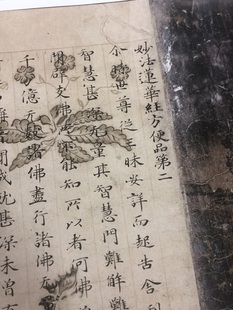 妙法蓮華經方便品第二
尒時世尊從三昧安詳而起告舍
智慧甚深无量其智慧門難解難
聞辟支佛所不能知所以者何佛
千億无數諸佛盡行諸佛无
聞成就甚深未曾有